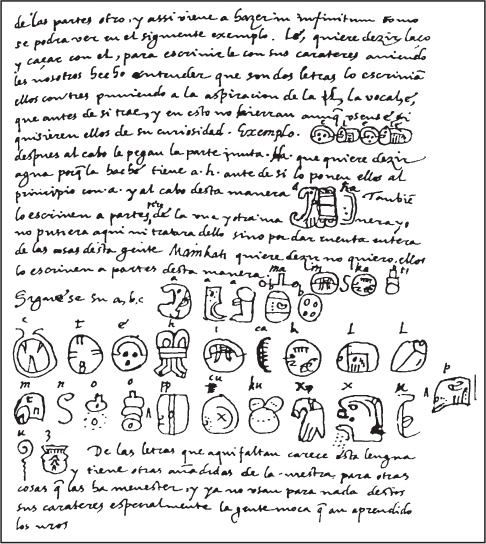 de las partes otro, y assi viene a hazer in infinitum como
se podra ver en el siguiente exemplo. Lé, quiere dezir laço
y caçar con el, para escrivirle con sus carateres aviendo
les nosotros hecho entender que son dos letras lo escrivian
ellos con tres puniendo a la aspiracion de la l, la vocal é,
que antes de si trae, y en esto no hierran aunq usense, si
quisieren ellos de su curiosidad. Exemplo.
despues al cabo le pegan la parte junta. Ha. que quiere dezir
agua porq la haché tiene a. h. ante de si lo ponen ellos al
principio con a. y al cabo desta manera a ha Tambié
lo escriven a partes, de la una y otra ma nera, yo
no pusiera aqui ni tratara dello sino por dar cuenta entera
de las cosas desta gente. Mamkati quiere dezir no quiero, ellos
lo escriven a partes desta manera. ma in ka ti
Siguese su a, b, c a a a b b
c t é h i ca k l l
m n o o pp cu ku x x u p
u z
De las letras que aqui faltan carece esta lengua
y tiene otras añadidas de la nuestra, para otras
cosas q las ha menester, y ya no usan para nada destos
sus carateres especialmente la gente moça q an aprendido
los nros